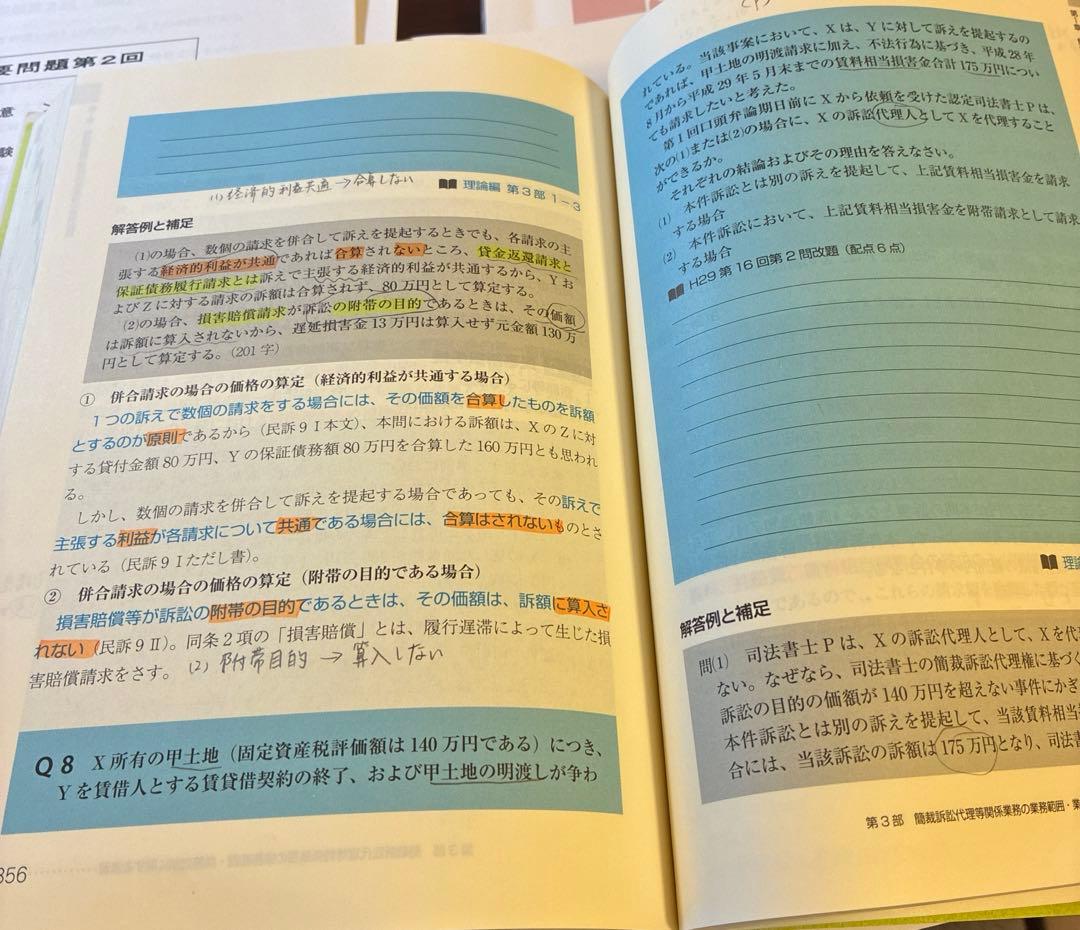 要問題第2回
意
験
(1) 経済的利益共通→合算しない
理論編 第3部 1－3
解答例と補足
(1)の場合、数個の請求を併合して訴えを提起するときでも、各請求の主
張する経済的利益が共通であれば合算されないところ、貸金返還請求と
保証債務履行請求とは訴えで主張する経済的利益が共通するから、Yお
よびZに対する請求の訴額は合算されず、80万円として算定する。
(2)の場合、損害賠償請求が訴訟の附帯の目的であるときは、その価額
は訴額に算入されないから、遅延損害金13万円は算入せず元金額130万
円として算定する。（201字）
① 併合請求の場合の価格の算定（経済的利益が共通する場合）
1つの訴えで数個の請求をする場合には、その価額を合算したものを訴額
とするのが原則であるから（民訴9Ⅰ本文）、本問における訴額は、XのZに対
する貸付金額80万円、Yの保証債務額80万円を合算した160万円とも思われ
る。
しかし、数個の請求を併合して訴えを提起する場合であっても、その訴えで
主張する利益が各請求について共通である場合には、合算はされないものとさ
れている（民訴9Ⅰただし書）。
② 併合請求の場合の価格の算定（附帯の目的である場合）
損害賠償等が訴訟の附帯の目的であるときは、その価額は、訴額に算入さ
れない（民訴9Ⅱ）。同条2項の「損害賠償」とは、履行遅滞によって生じた損
害賠償請求をさす。 (2) 附帯目的 → 算入しない
Q8 X所有の甲土地（固定資産税評価額は140万円である）につき、
Yを賃借人とする賃貸借契約の終了、および甲土地の明渡しが争わ
356
れている。当該事案において、Xは、Yに対して訴えを提起するの
であれば、甲土地の明渡請求に加え、不法行為に基づき、平成28年
8月から平成29年5月末までの賃料相当損害金合計175万円につい
ても請求したいと考えた。
第1回口頭弁論期日前にXから依頼を受けた認定司法書士Pは、
次の(1)または(2)の場合に、Xの訴訟代理人としてXを代理すること
ができるか。
それぞれの結論およびその理由を答えなさい。
(1) 本件訴訟とは別の訴えを提起して、上記賃料相当損害金を請求
する場合
(2) 本件訴訟において、上記賃料相当損害金を附帯請求として請求
する場合
H29第16回第2問改題（配点6点）
理論
解答例と補足
問(1) 司法書士Pは、Xの訴訟代理人として、Xを代
ない。なぜなら、司法書士の簡裁訴訟代理権に基づく
訴訟の目的の価額が140万円を超えない事件にかぎ
本件訴訟とは別の訴えを提起して、当該賃料相当
合には、当該訴訟の訴額は175万円となり、司法書
第3部 簡裁訴訟代理等関係業務の業務範囲・業